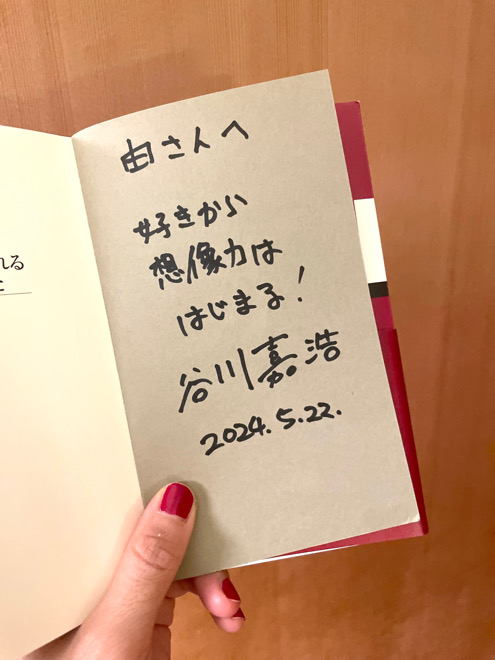 由さんへ
好きから
想像力は
はじまる!
谷川嘉浩
2024.5.22.
れる